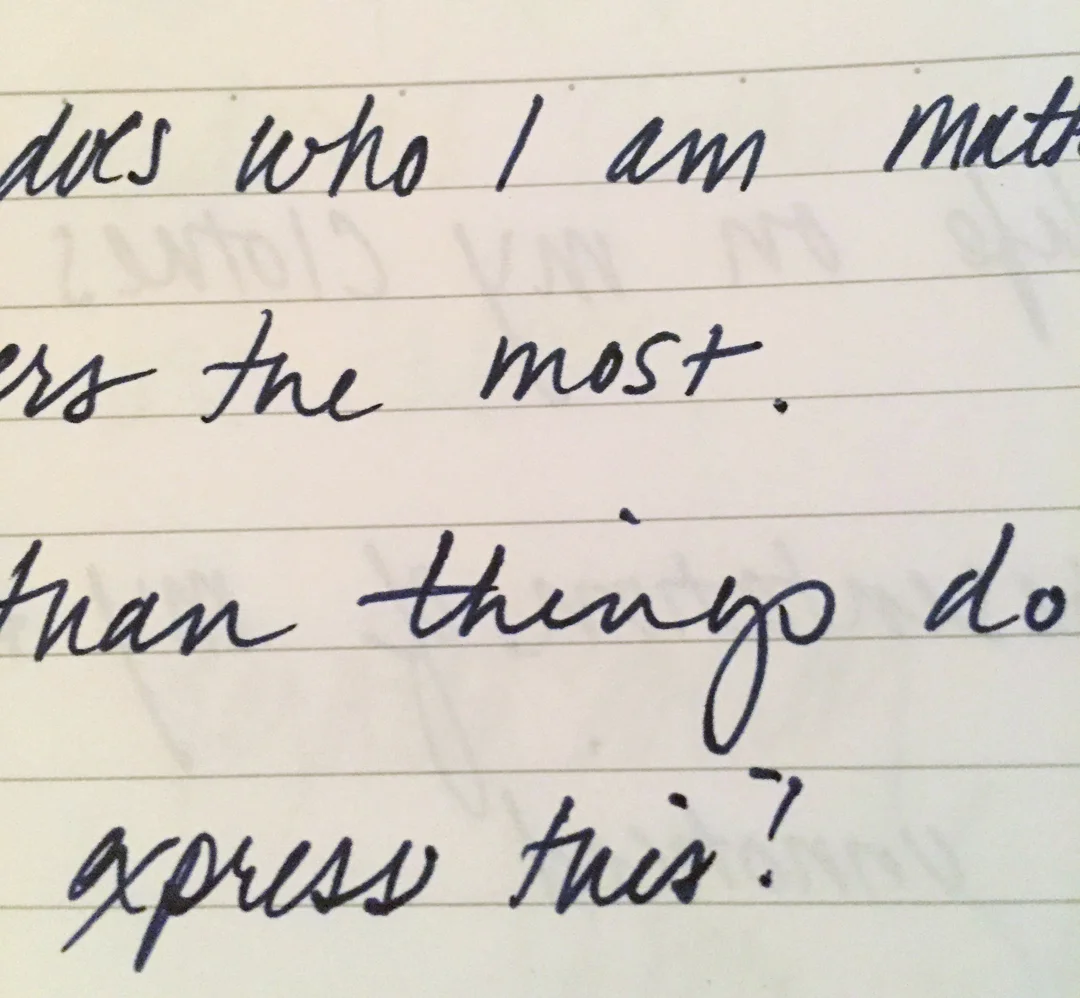 does who I am matt
ers the most.
than things do
express this?